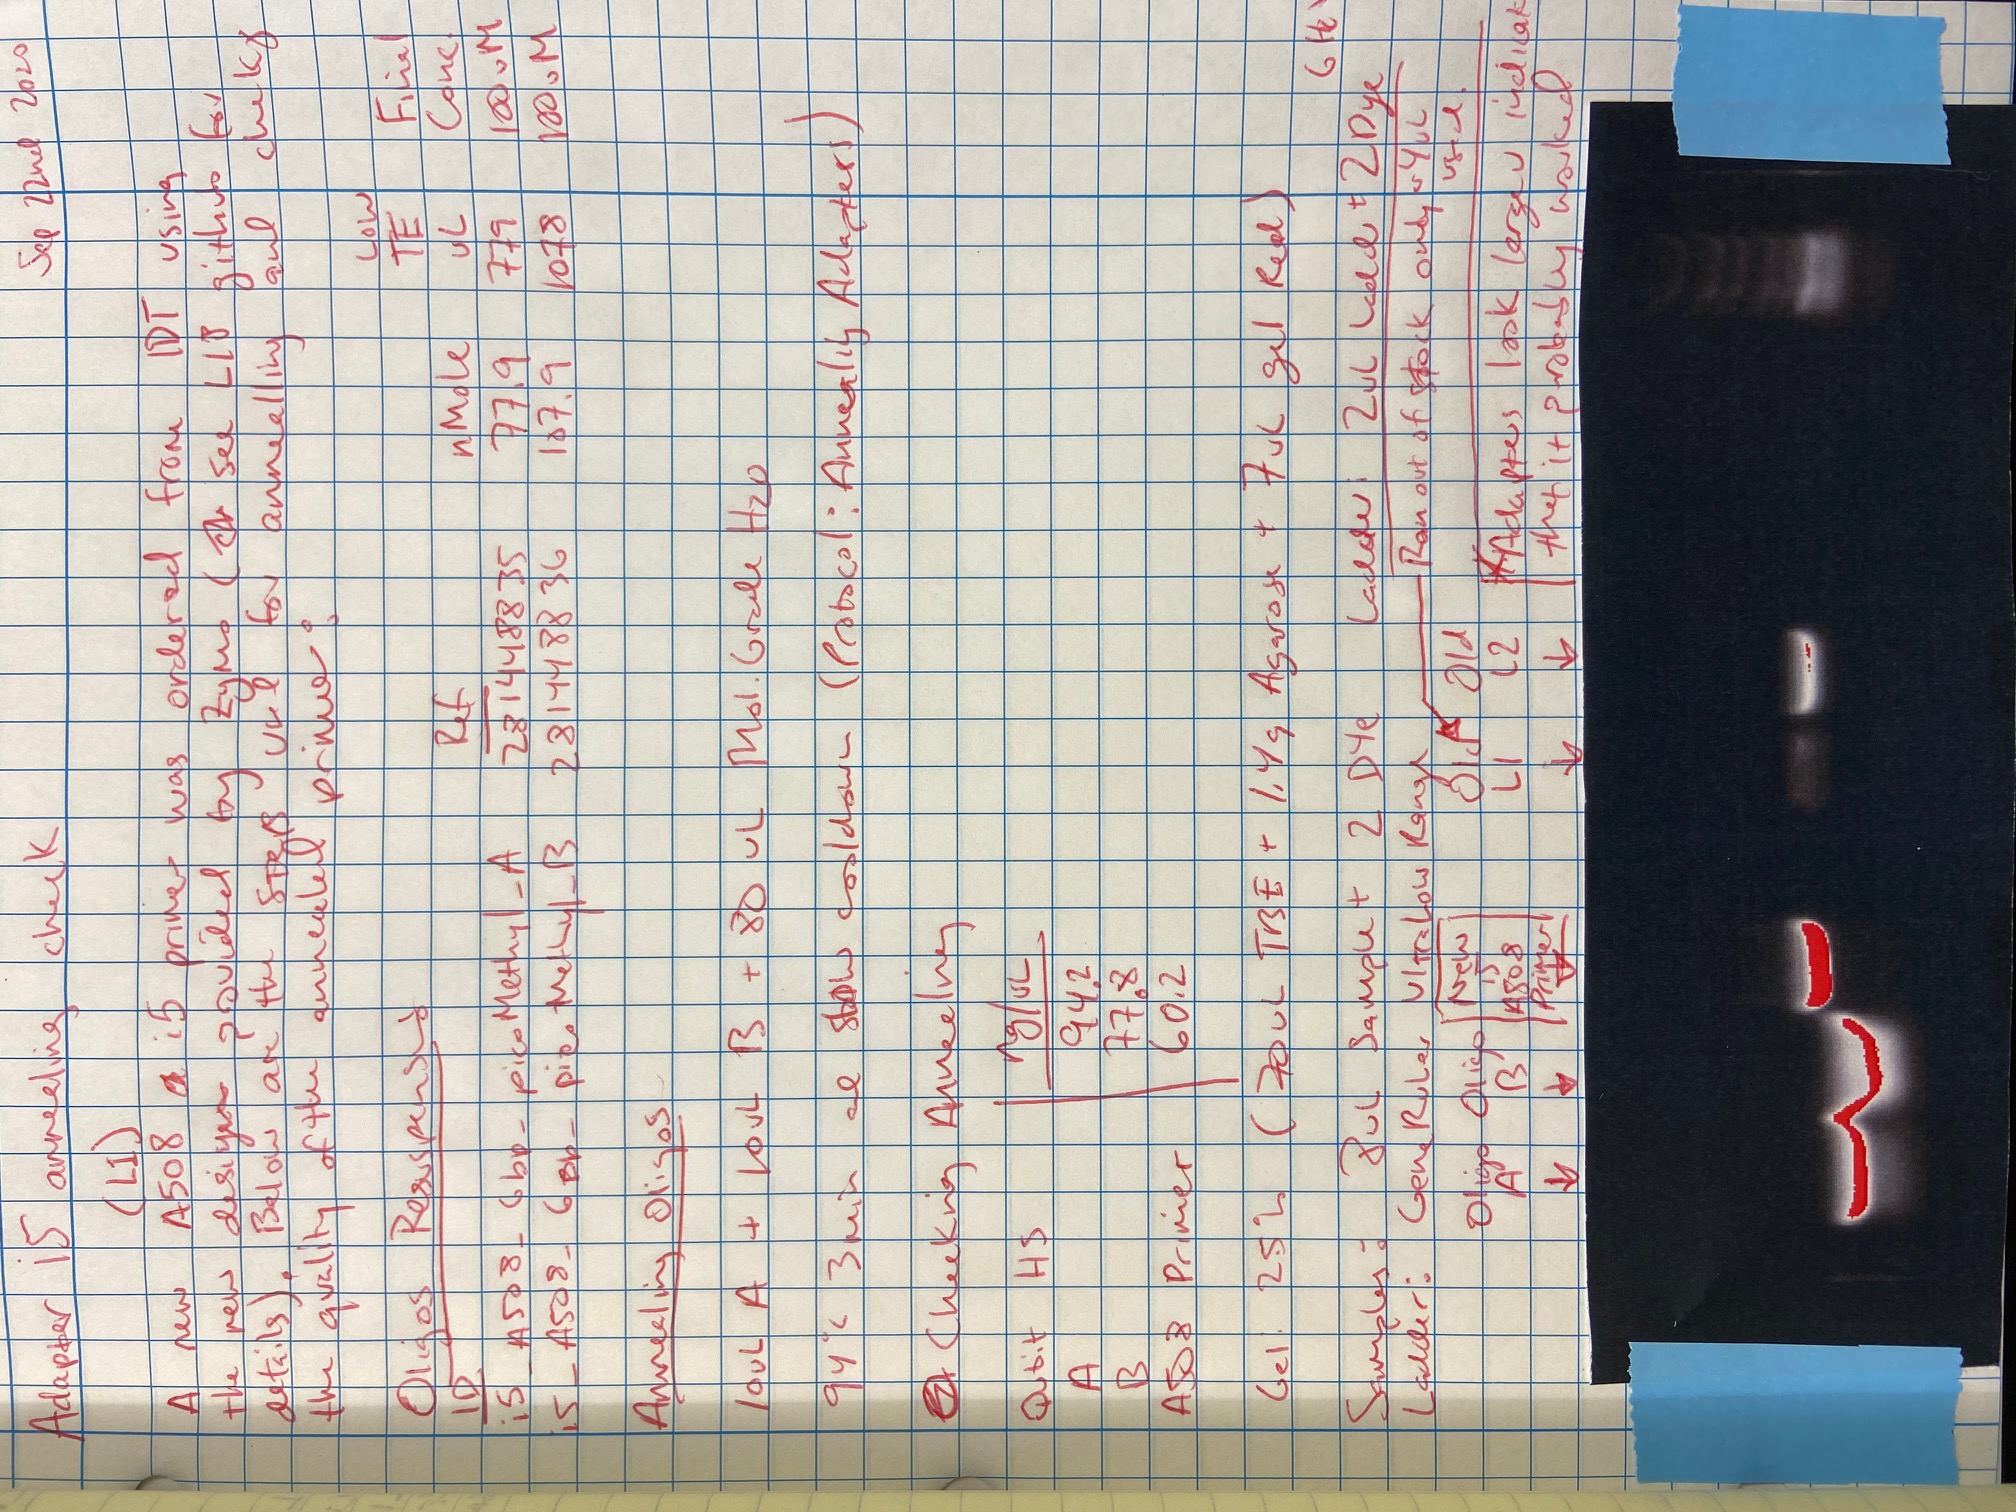 Adapter i5 annealing check Sep 22nd 2020
(L1)
A new A508 i5 primer was ordered from IDT using
the new designs provided by Zymo ( see L18 github for
details). Below are the steps used for annealling and checkg
the quality of the annealed primer:
Low
Oligos Resuspensd TE Final
ID Ref nMole uL Conc.
i5_A508_6bp_picoMethyl_A 2814448835 77.9 779 100uM
i5_A508_6bp_picoMethyl_B 281448836 107.9 1078 100uM
Annealing Oligos
10uL A + 10uL B + 80 uL Mol. Grade H2O
94°C 3min and slow cooldown (Protocol: Annealig Adapters)
Checking Annealing
Qubit HS ng/uL
A 94.2
B 77.8
A508 Primer 60.2
Gel: 25% (70uL TBE + 1.4g Agarose + 7uL gel Red)
Samples: 8uL Sample + 2 Dye Ladder: 2uL Ladd + 2 Dye
Ladder: GeneRuler UltraLow Range Ran out of stock only ~4uL
used.
Oligo A
Oligo B
New i5 A508 Primer
Old L1
Old L2
*Adapters look larger indicat
that it probably worked